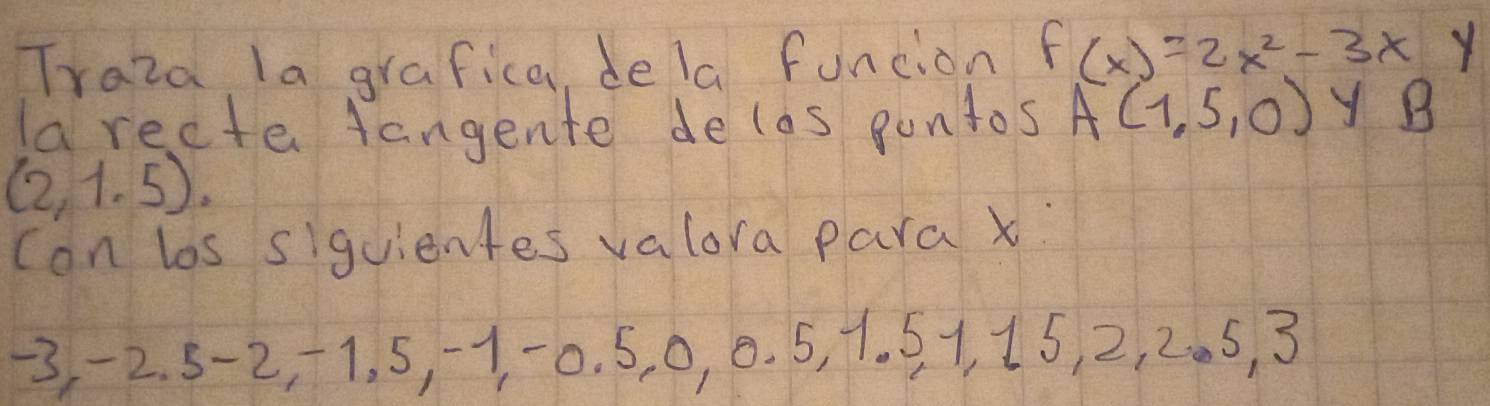 Traza la grafica, de la funcion f(x)=2x²-3x y
la recta tangente de los puntos A(1.5,0) y B
(2,1.5).
Con los siguientes valora para x:
-3,-2.5-2,-1.5,-1,-0.5,0,0.5,1.5,1,15,2,2.5,3